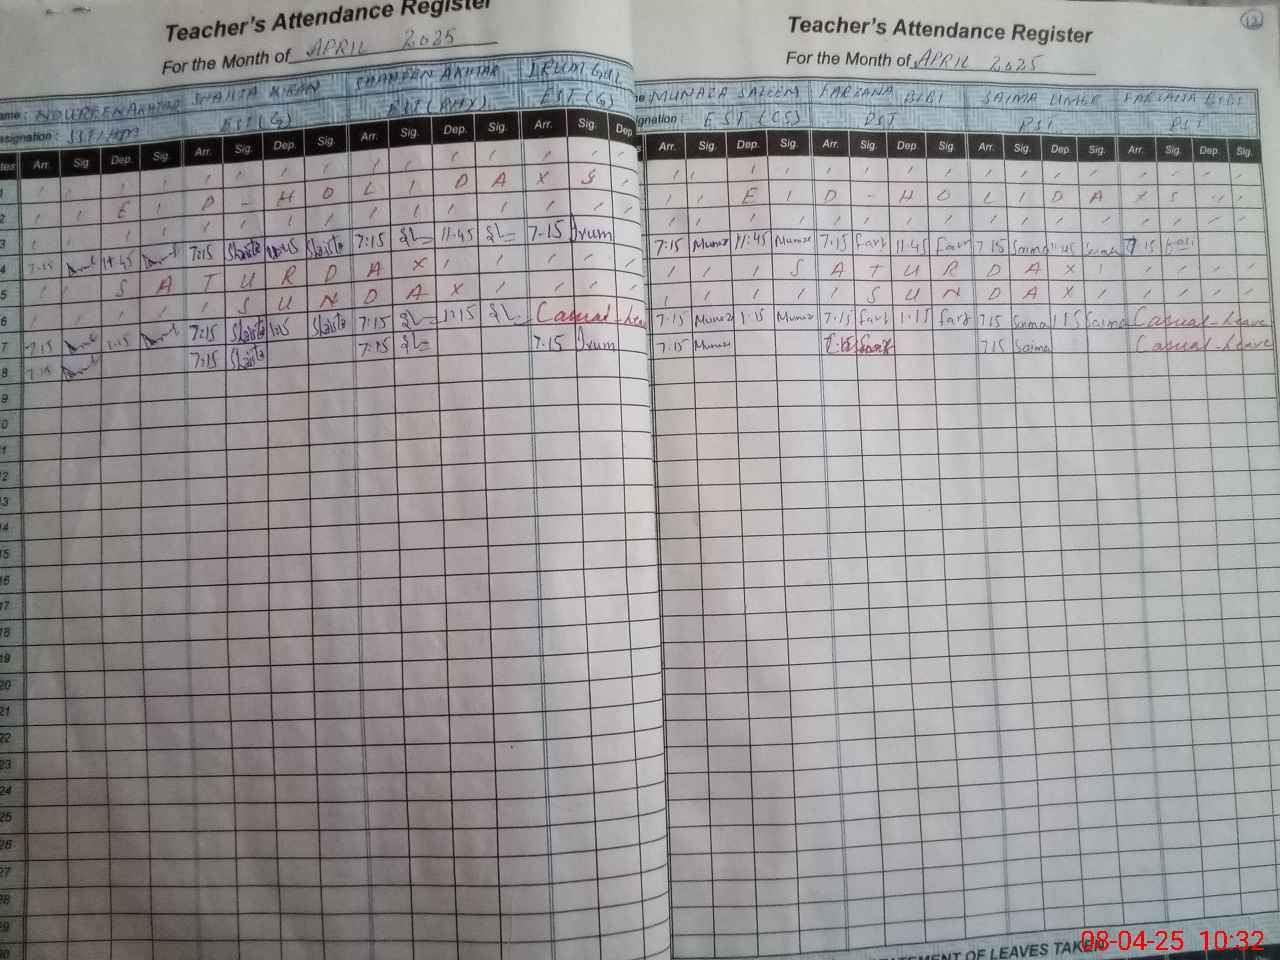 Teacher's Attendance Register
For the Month of APRIL 2025
ame: NOUREEN AKHTAR SHAISTA KIRAN SHAHEEN AKHTAR IRUM GUL
signation: SST/HM EST(G) EST(PHY) EST(G)
tes Arr. Sig. Dep. Sig. Arr. Sig. Dep. Sig. Arr. Sig. Dep. Sig. Arr. Sig. Dep.
1
2 E I D - H O L I D A Y S
3
4 7:15 11:45 7:15 Shaista 11:45 Shaista 7:15 11:45 7-15 Irum
5 S A T U R D A Y
6 S U N D A Y
7 7:15 1:15 7:15 Shaista 1:15 Shaista 7:15 1:15 Casual-leav
8 7:15 7:15 Shaista 7:15 7:15 Irum
9
0
1
2
3
4
5
6
7
8
19
20
21
22
23
24
25
26
27
28
29
30
12
Teacher's Attendance Register
For the Month of APRIL 2025
e MUNAZA SALEEM FARZANA BIBI SAIMA FARZANA BIBI
ignation: EST (CS) PST PST PST
s Arr. Sig. Dep. Sig. Arr. Sig. Dep. Sig. Arr. Sig. Dep. Sig. Arr. Sig. Dep. Sig.
E I D - H O L I D A Y S
7:15 Munaz 11:45 Munaz 7:15 Farz 11:45 Farz 7 15 Saima 11:45 Saima 7 15
S A T U R D A Y
S U N D A Y
7:15 Munaz 1:15 Munaz 7:15 Farz 1:15 Farz 7:15 Saima 1:15 Saima Casual-leave
7:15 Munaz 7:15 Farz 7:15 Saima Casual-leave
TEMENT OF LEAVES TAKEN
08-04-25 10:32